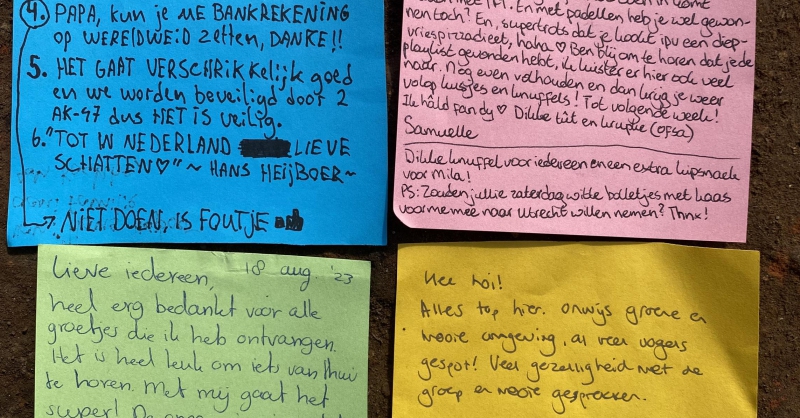 4. PAPA, KUN JE ME BANKREKENING
OP WERELDWEID ZETTEN, DANKE!!
5. HET GAAT VERSCHRIKKELIJK GOED
EN WE WORDEN BEVEILIGD DOOR 2
AK-47 DUS HET IS VEILIG.
6. "TOT IN NEDERLAND LIEVE
SCHATTEN♡" ~ HANS HEIJBOER ~
→ NIET DOEN, IS FOUTJE
En met padellen heb je wel gewon-
nen toch? En, supertrots dat je kookt ipv een diep-
vriespizza dieet, haha ♡ Ben blij om te horen dat je de
playlist gevonden hebt, ik luister er hier ook veel
naar. Nog even volhouden en dan krijg je weer
volop kusjes en knuffels! Tot volgende week!
Ik hâld fan dy ♡ Dikke tút en krûpke (ofsa)
Samuelle
Dikke knuffel voor iedereen en een extra lipsmack
voor Mila!
PS: Zouden jullie zaterdag witte bolletjes met kaas
voor me mee naar Utrecht willen nemen? Thnx!
Lieve iedereen, 18 aug '23
heel erg bedankt voor alle
groetjes die ik heb ontvangen.
Het is heel leuk om iets van thuis
te horen. Met mij gaat het
super!
Hee hoi!
Alles top hier. onwijs groene en
mooie omgeving, al veel vogels
gespot! Veel gezelligheid met de
groep en mooie gesprekken.